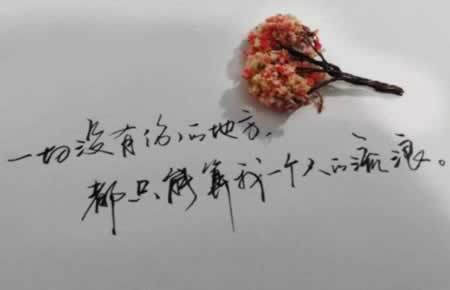 一切没有你的地方，
都只能算我一个人的流浪。